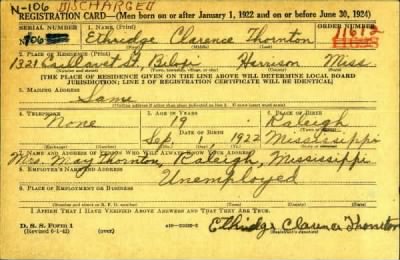 N-106 DISCHARGED
REGISTRATION CARD—(Men born on or after January 1, 1922 and on or before June 30, 1924)
SERIAL NUMBER 1. NAME (Print) ORDER NUMBER
N 106 Ethridge Clarence Thornton 11612
(First) (Middle) (Last)
2. PLACE OF RESIDENCE (Print)
1321 St., Biloxi Harrison Miss.
(Number and street) (Town, township, village, or city) (County) (State)
[THE PLACE OF RESIDENCE GIVEN ON THE LINE ABOVE WILL DETERMINE LOCAL BOARD
JURISDICTION; LINE 2 OF REGISTRATION CERTIFICATE WILL BE IDENTICAL]
3. MAILING ADDRESS
Same
[Mailing address if other than place indicated on line 2. If same insert word same]
4. TELEPHONE 5. AGE IN YEARS 6. PLACE OF BIRTH
None 19 Raleigh
DATE OF BIRTH
Sep. 1 1922 Mississippi
(Mo.) (Day) (Yr.) (State or country)
7. NAME AND ADDRESS OF PERSON WHO WILL ALWAYS KNOW YOUR ADDRESS
Mrs. May Thornton, Raleigh, Mississippi
8. EMPLOYER'S NAME AND ADDRESS
Unemployed
9. PLACE OF EMPLOYMENT OR BUSINESS
(Number and street or R. F. D. number) (Town) (County) (State)
I AFFIRM THAT I HAVE VERIFIED ABOVE ANSWERS AND THAT THEY ARE TRUE.
D. S. S. Form 1
(Revised 6-1-42) (over) Ethridge Clarence Thornton
(Registrant's signature)